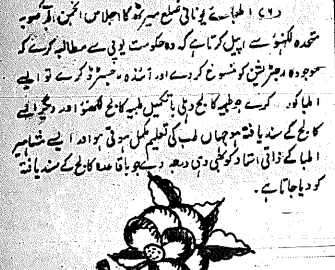 (۲) اطباے یونانی ضلع میرٹھ کا اجلاس انجمن اطبا صوبہ
متحدہ لکھنؤ سے اپیل کرتا ہے کہ وہ حکومت یوپی سے مطالبہ کرے کہ
موجودہ رجسٹریشن کو منسوخ کردے اور آئندہ رجسٹرڈ کرے تو ایسے
اطبا کو کرے جو طبیہ کالج دہلی یا تکمیل طبیہ کالج لکھنؤ اور دیگر ایسے
کالج کے سند یافتہ ہو جہاں طب کی تعلیم مکمل ہوتی ہو اور ایسے مشاہیر
اطبا کے ذاتی اسناد کو طبی وہی درجہ دے جو باقاعدہ کالج کے سند یافتہ
کو دیا جاتا ہے۔